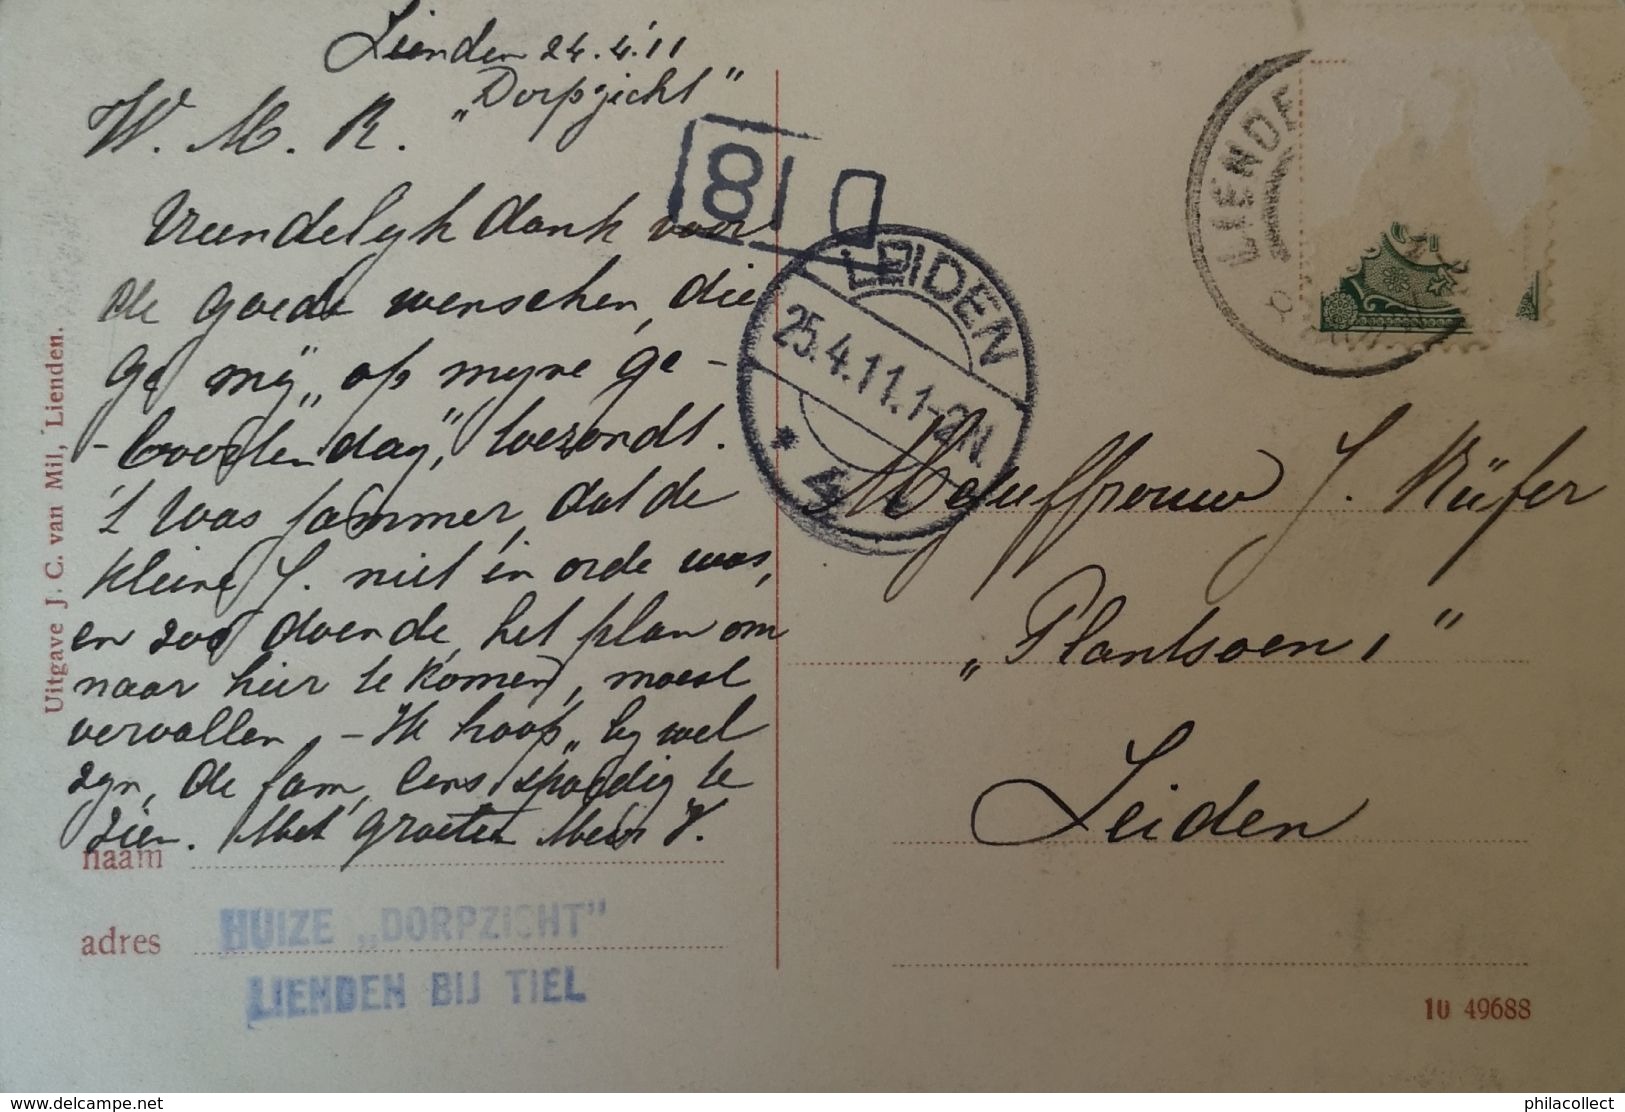 Lienden 24.4.'11
"Dorpzicht"
W. M. R.
Vreendelijk dank voor
de goede wenschen, die
ge mij "op mijne ge-
-boortendag", toezondt.
't Was jammer, dat de
kleine J. niet in orde was,
en zoo doende, het plan om
naar hier te komen, moest
vervallen. - Ik hoop, bij wel
zijn, de fam, eens spoedig te
zien. Met groeten
naam
adres
HUIZE „DORPZICHT"
LIENDEN BIJ TIEL
Uitgave J. C. van Mil, Lienden.
8
LEIDEN
25.4.11.1-2N.
* 4
LIENDE
Mejuffrouw J. Rüfer
„Plantsoen,"
Leiden
10 49688
delcampe.net
philacollect